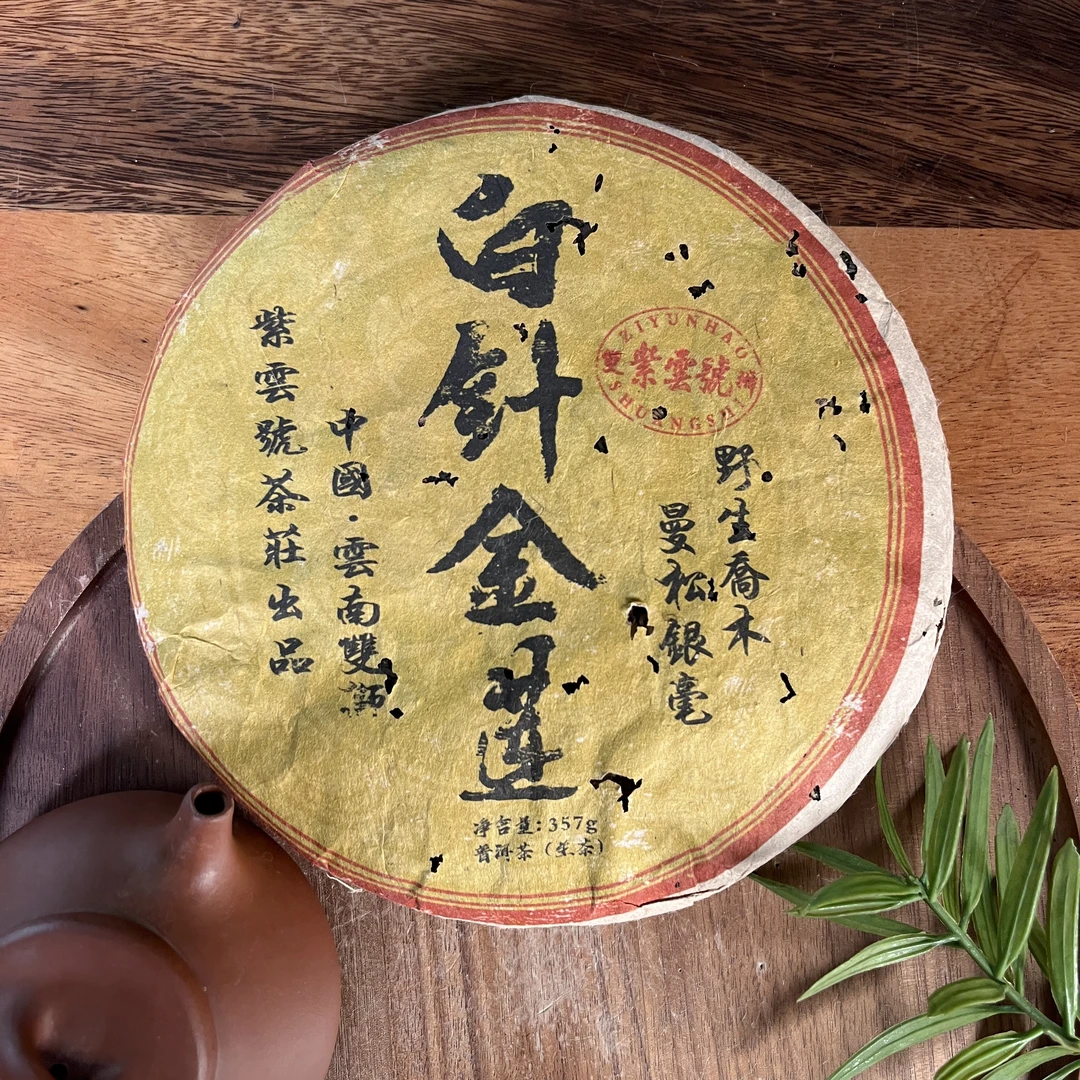 白針金蓮
ZIYUNHAO
雙 紫雲號 獅
SHUANGSHI
野生喬木
曼松銀毫
中國·雲南雙獅
紫雲號茶莊出品
净含量:357g
普洱茶(生茶)